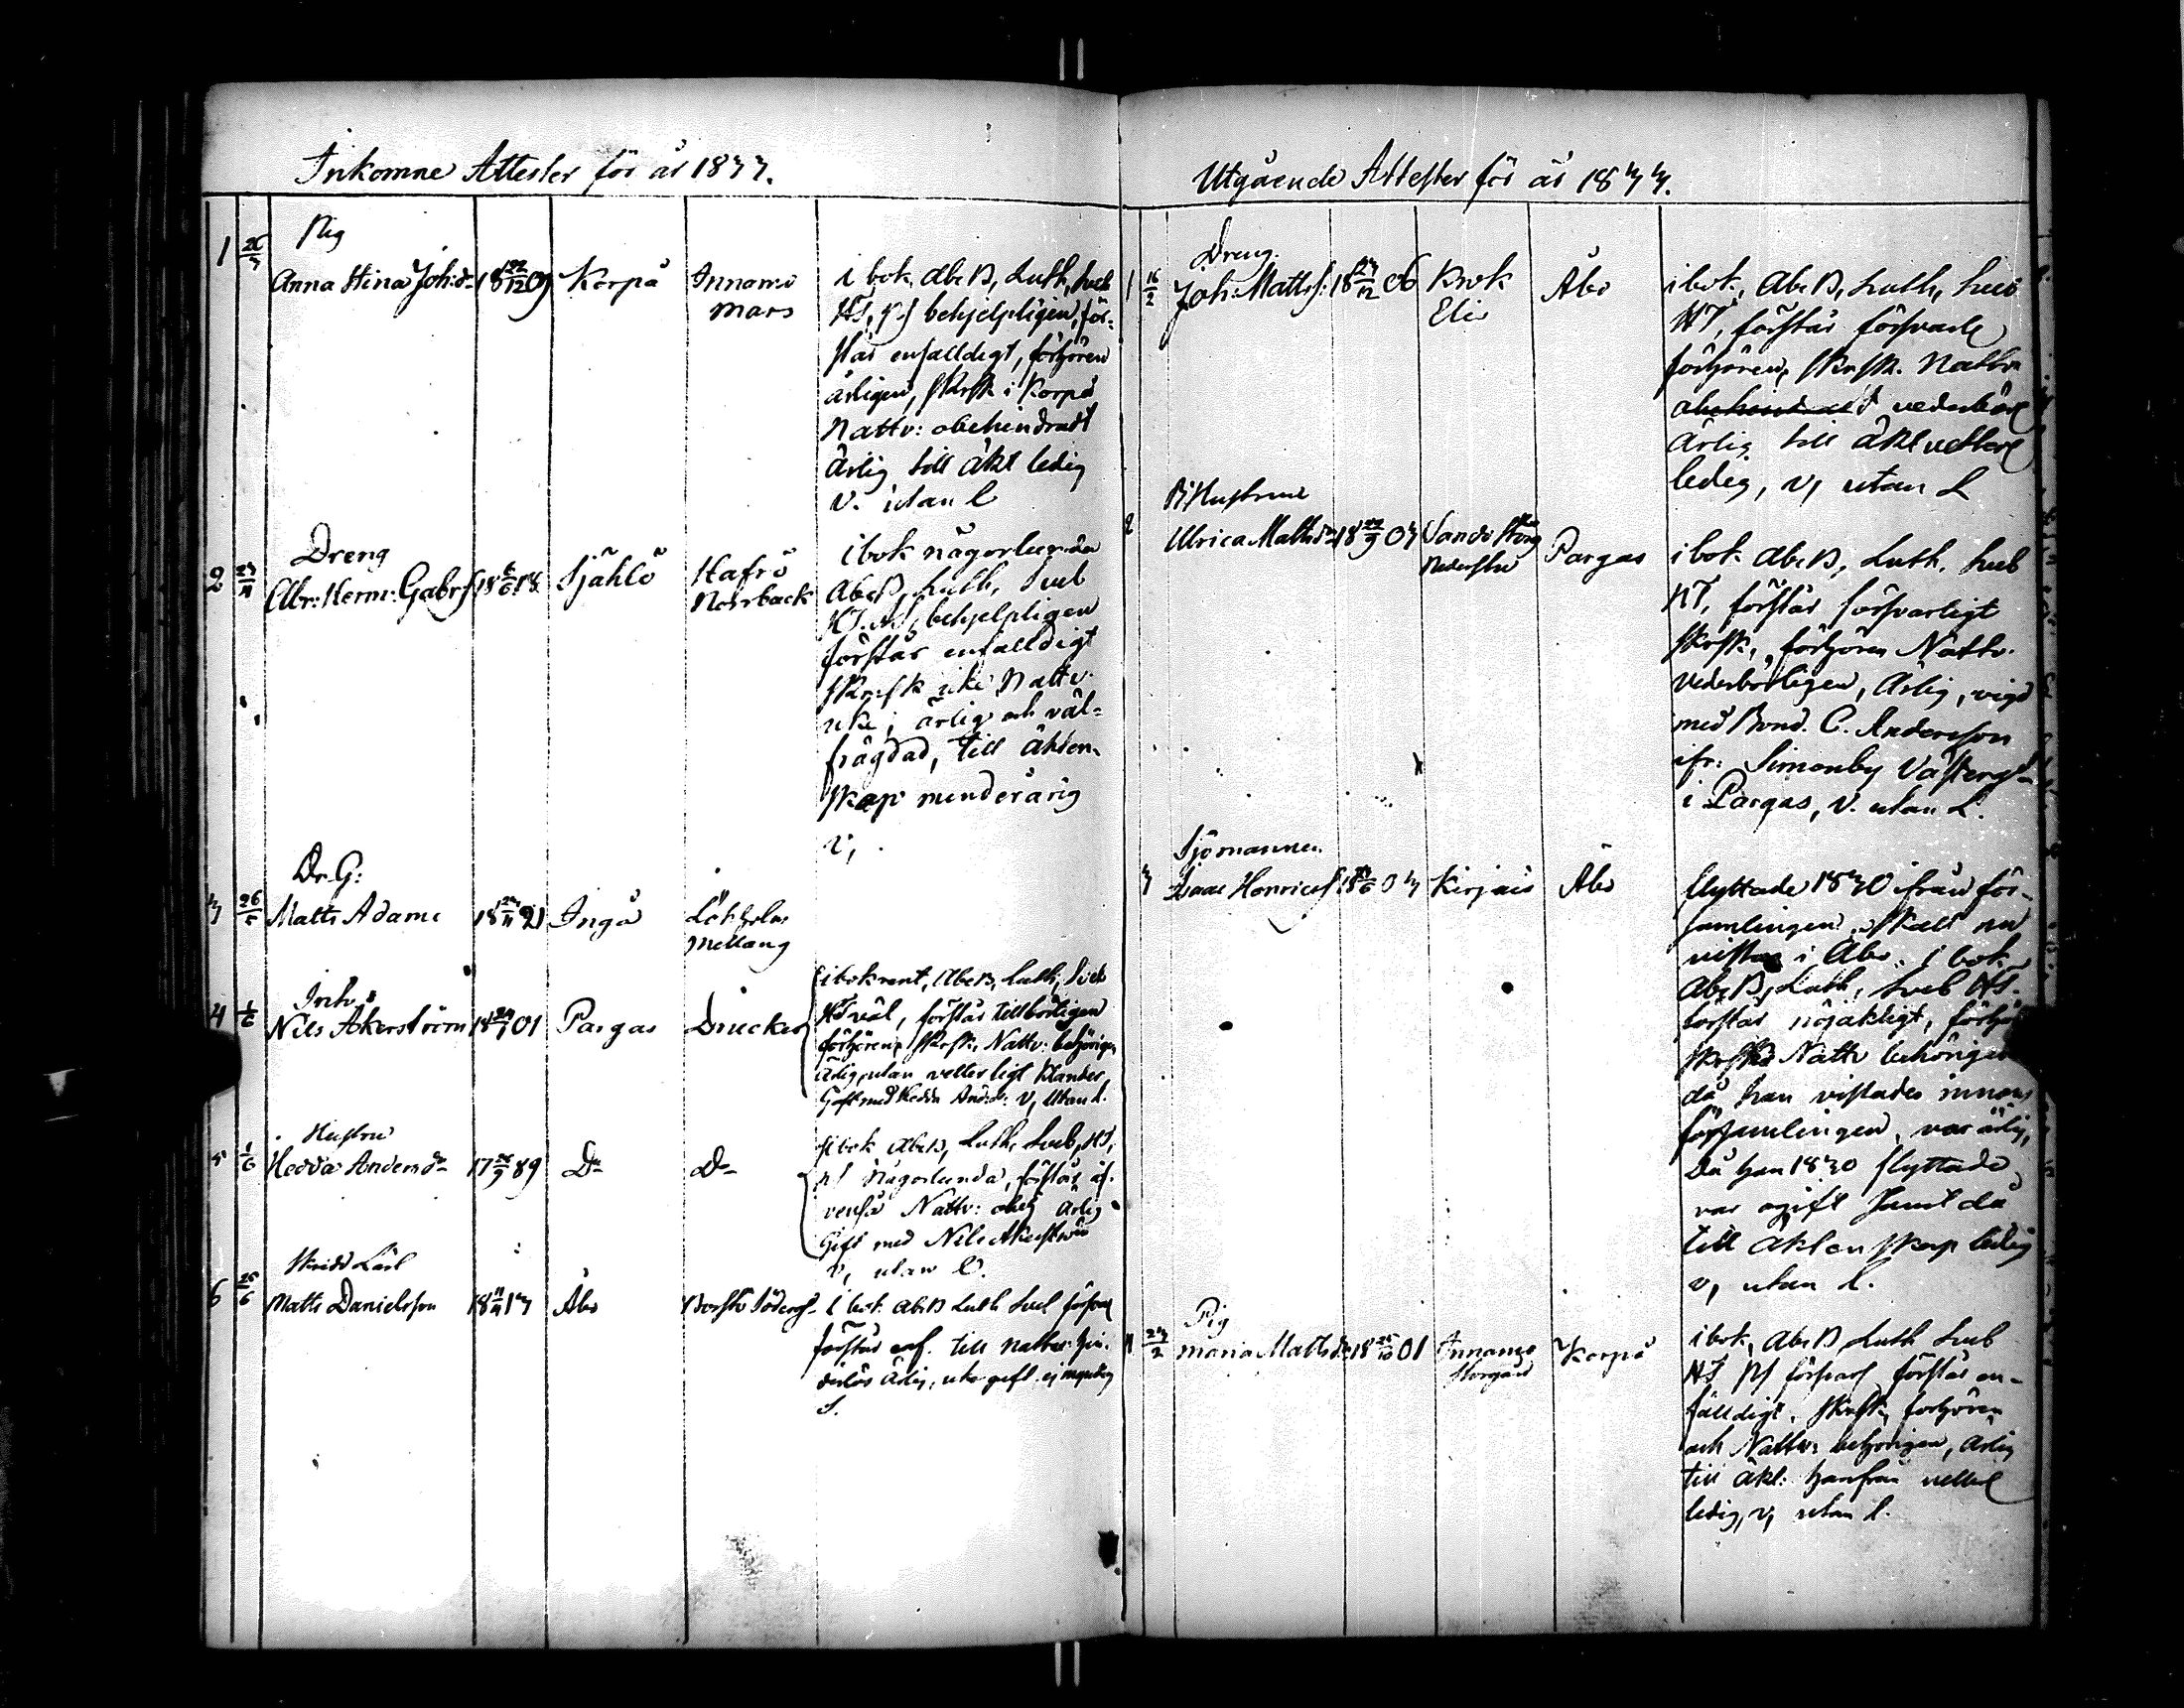 Inkomne Attester för år 1833.
1 26/3 Pig
Anna Stina Joh:dr 18 22/12 09 Korpo Innamo
Mars
i bok AbcB, Luth, Sveb
HT, ps behjelpligen, för-
står enfalldigt, förhören
årligen, skrsk i Korpo
Nattv: obehindradt
Ärlig till äkt ledig
v. utan l
2 23/4 Dreng
Abr: Herm: Gabrs 18 6/6 18 Sjählö Hafrö
Norrback
i bok någorlunda
AbcB, Luth, Sveb
HT. behjelpligen
förstår enfalldigt
skrifsk icke Nattv.
icke; ärlig och väl-
frägdad, till äkten-
skap minderårig
v,
3 26/5 Dr. G:
Matts Adams 18 23/11 21 Ingå Lökholm
Mellang
4 1/6 Inh.
Nils Åkerström 18 01 Pargas Drucker
i bok rent, AbcB, Luth, Sveb
HT väl, förstår tillbörligen
förhören, skrsk, Nattv: behörigen
Ärlig, utan vetterligt klander
Gift med Hedda Anders: v, utan l.
5 1/6 Hustru
Hedda Andersdr 17 26/9 89 Do Do
i bok AbcB, Luth, Sveb, HT,
någorlunda, förstår äf-
venså Nattv: ärlig
Gift med Nils Åkerström
v, utan l.
6 25/6 Lärl
Matts Danielsson 18 11/4 13 Åbo Södergd
i bok AbcB Luth Sveb försvarl
förstår enf. till nattv: hin-
derlös Ärlig, icke gift ej myndig
Utgående Attester för år 1833.
1 16/2 Dreng.
Joh: Matts: 18 23/12 06 Krok
Elis
Åbo
i bok, AbcB, Luth, Sveb
HT, förstår försvarl
förhören, skrsk. Nattv
obehindradt vederbörl
Ärlig till äkt vetterl
ledig, v, utan l
2 B: Hustrun
Ulrica Mattsdr 18 22/9 03 Sandö Storg
Pargas
i bok AbcB, Luth, Sveb
HT, förstår försvarligt
skrsk, förhören Nattv.
vederbörligen, Ärlig, vigd
med Bond. C. Andersson
ifr: Simonby Västergd
i Pargas, v. utan l.
3 Sjömannen
Isaac Henrics 18 03 Kirjais Åbo
flyttade 1830 ifrån för-
samlingen, skall nu
vistas i Åbo. i bok
AbcB, Luth, Sveb HT.
förstår nöjaktigt, förhör
skrsk Nattv behörigen
då han vistades innom
församlingen, var ärlig,
Då han 1830 flyttade
var ogift samt då
till äktenskap ledig
v, utan l.
4 23/2 Pig
Maria Mattsdr 18 25/10 01 Innamo
Storgård
Korpo
i bok, AbcB Luth Sveb
HT ps försvarl förstår en-
falldigt, skrsk, förhören
och Nattv: behörigen, Ärlig
till äkt: härifrån vetterl
ledig, v, utan l.